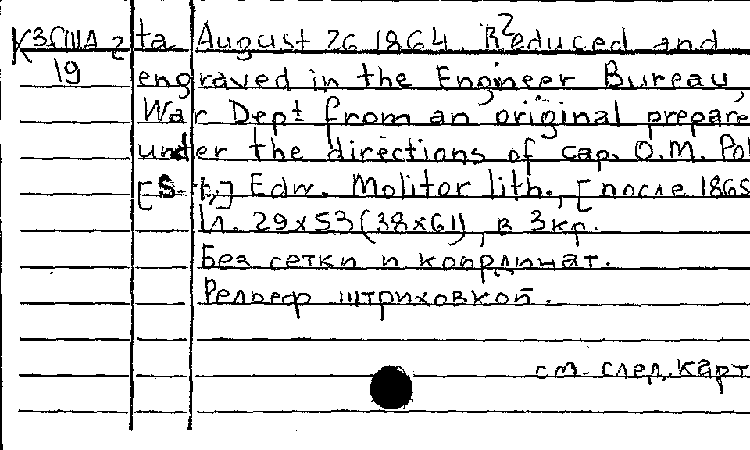 К3США 2 ta August 26 1864 Reduced and
19 engraved in the Engineer Bureau,
War Dept from an original prepare
under the directions of cap. O.M. Po
[S. l.,] Edw. Molitor lith., [после 1865
1л. 29x53 (38x61), в 3 кр.
Без сетки и координат.
Рельеф штриховкой.
см. след. карт